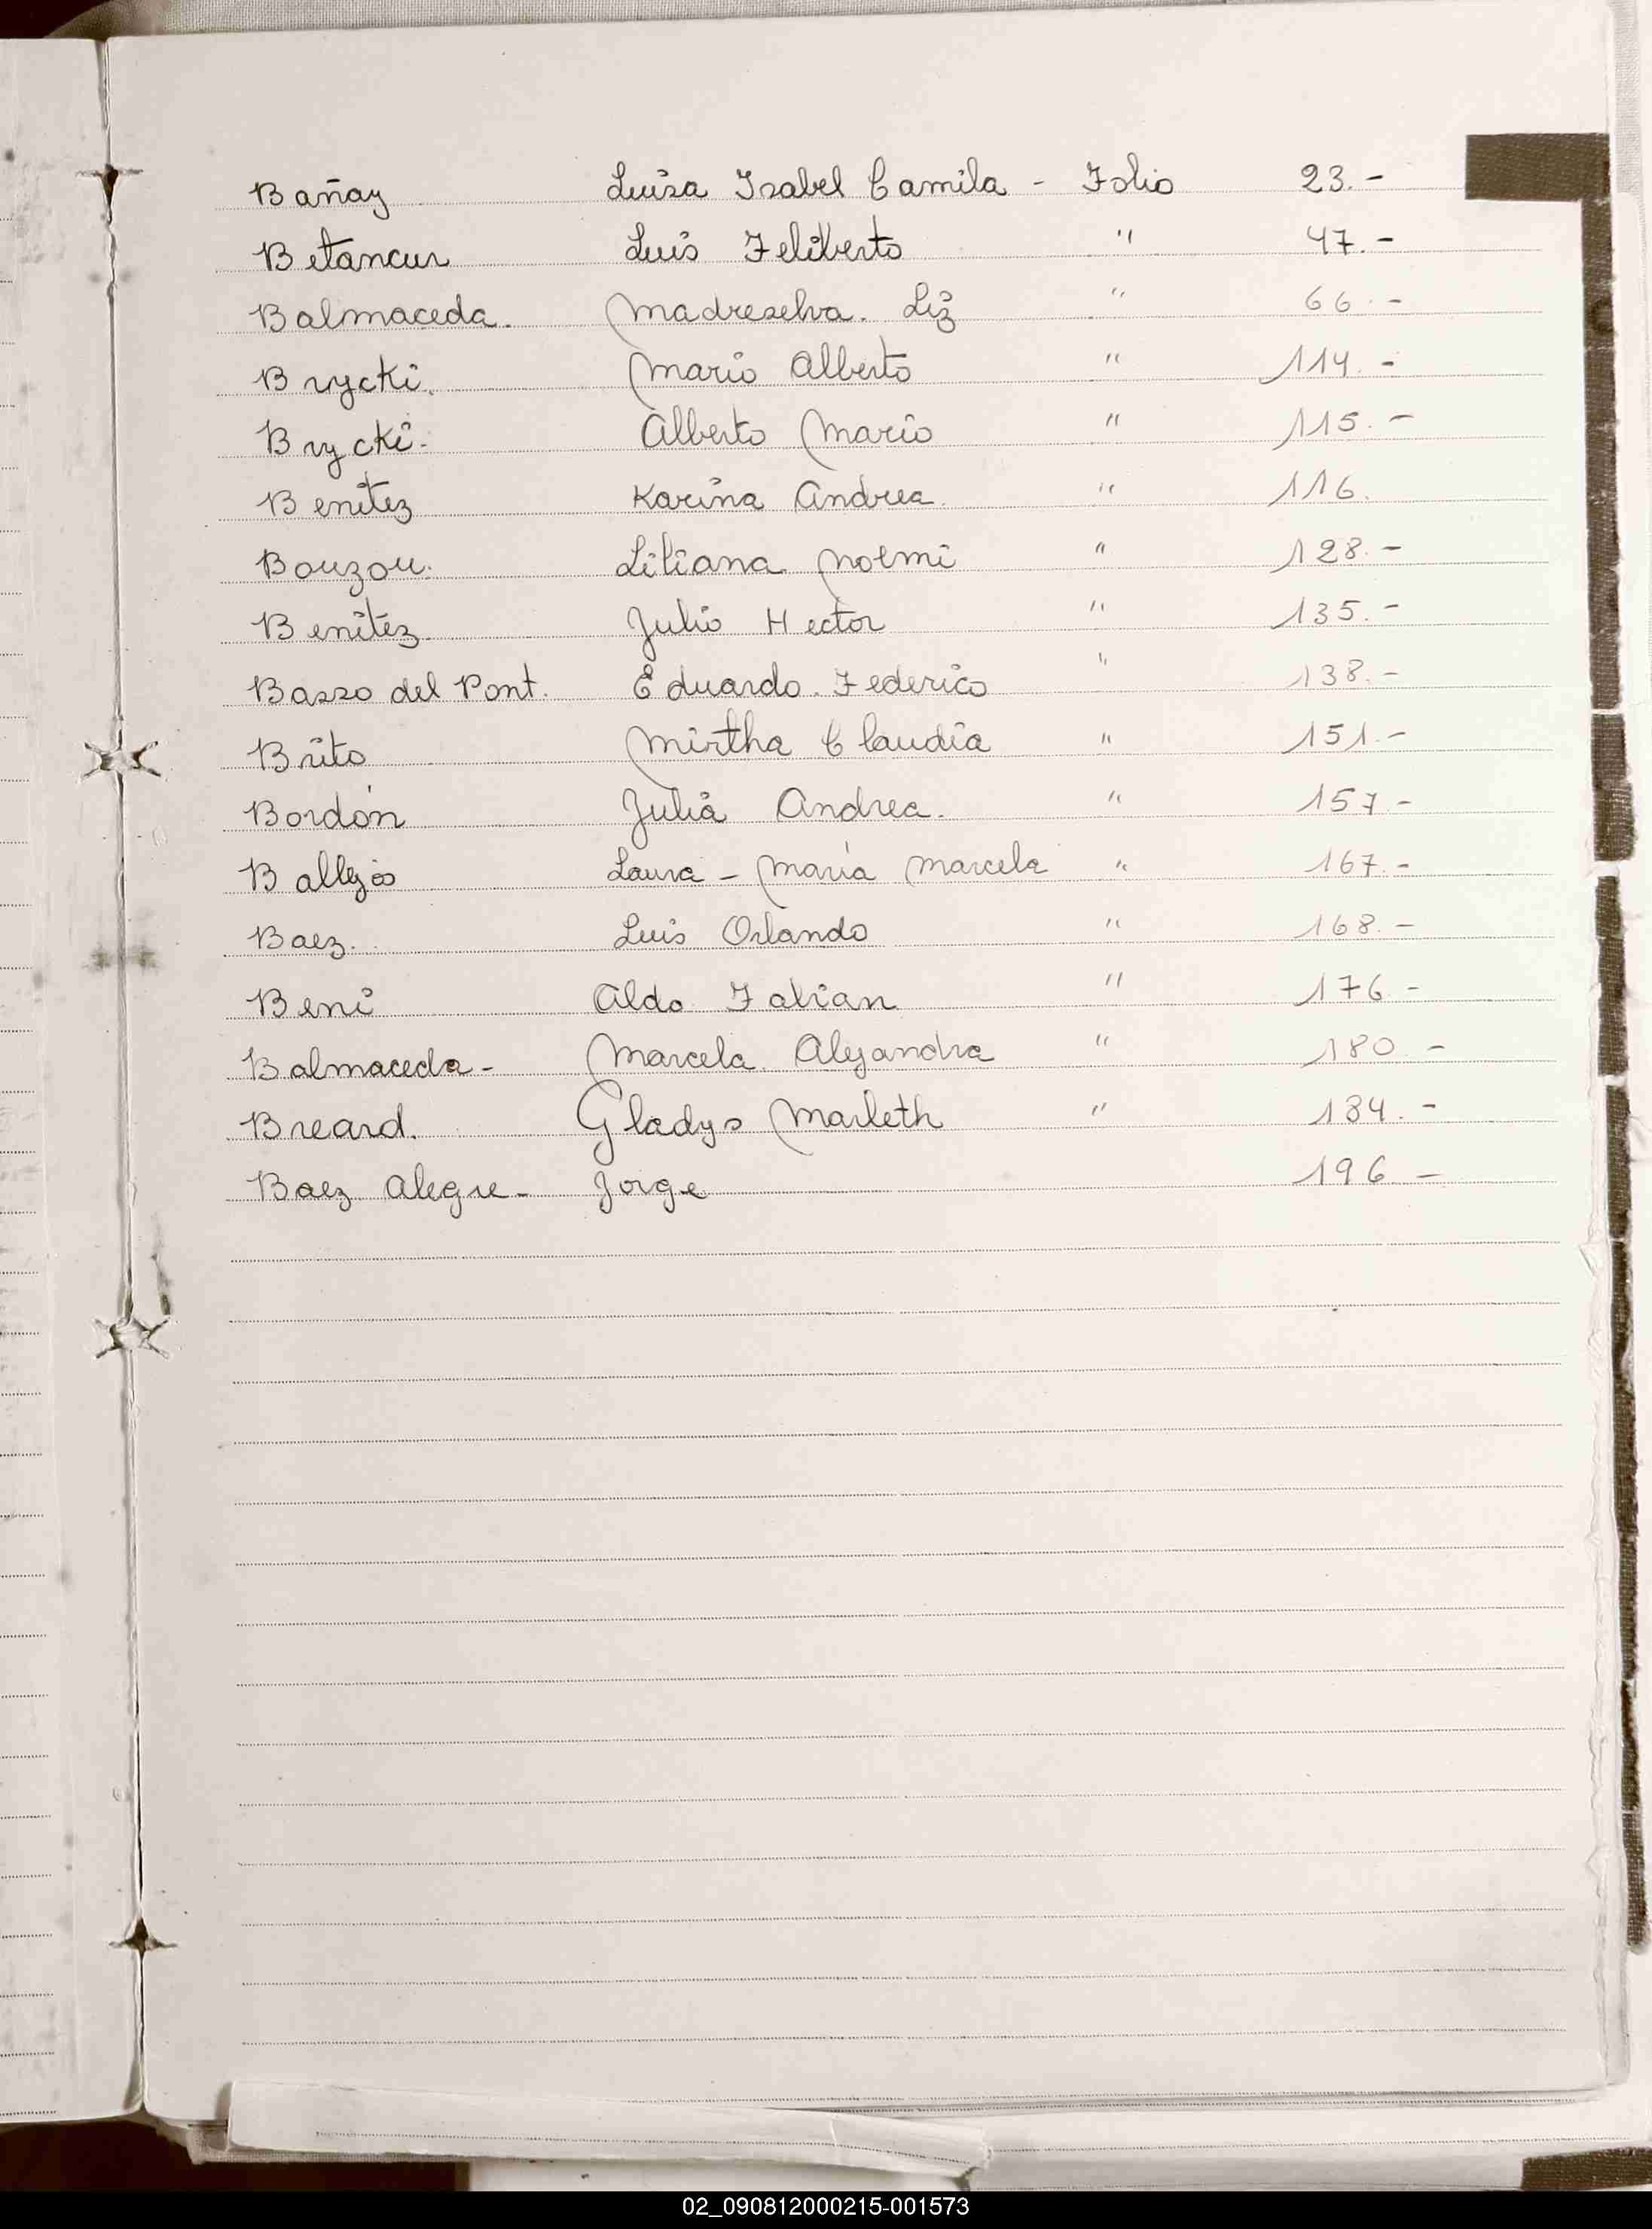 Bañay Luisa Isabel Camila - Folio 23.-
Betancur Luis Feliberto " 47.-
Balmaceda. Madreselva. Liz " 66.-
Brycki. Mario Alberto " 114.-
Brycki. Alberto Mario " 115.-
Benitez Karina Andrea. " 116.
Bouzou. Liliana Noemi " 128.-
Benitez Julio Hector " 135.-
Basso del Pont. Eduardo. Federico " 138.-
Brito Mirtha Claudia " 151.-
Bordón Julia Andrea. " 157.-
Ballejos Laura - María Marcela " 167.-
Baez. Luis Orlando " 168.-
Beni Aldo Fabian " 176.-
Balmaceda- Marcela. Alejandra " 180.-
Breard. Gladys Marleth " 184.-
Baez Alegre- Jorge 196-
02_090812000215-001573